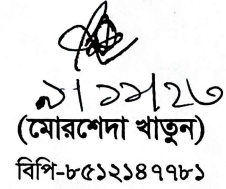 ৯/১১/২৩
(মোরশেদা খাতুন)
বিপি-৮৫১২১৪৭৭৮১